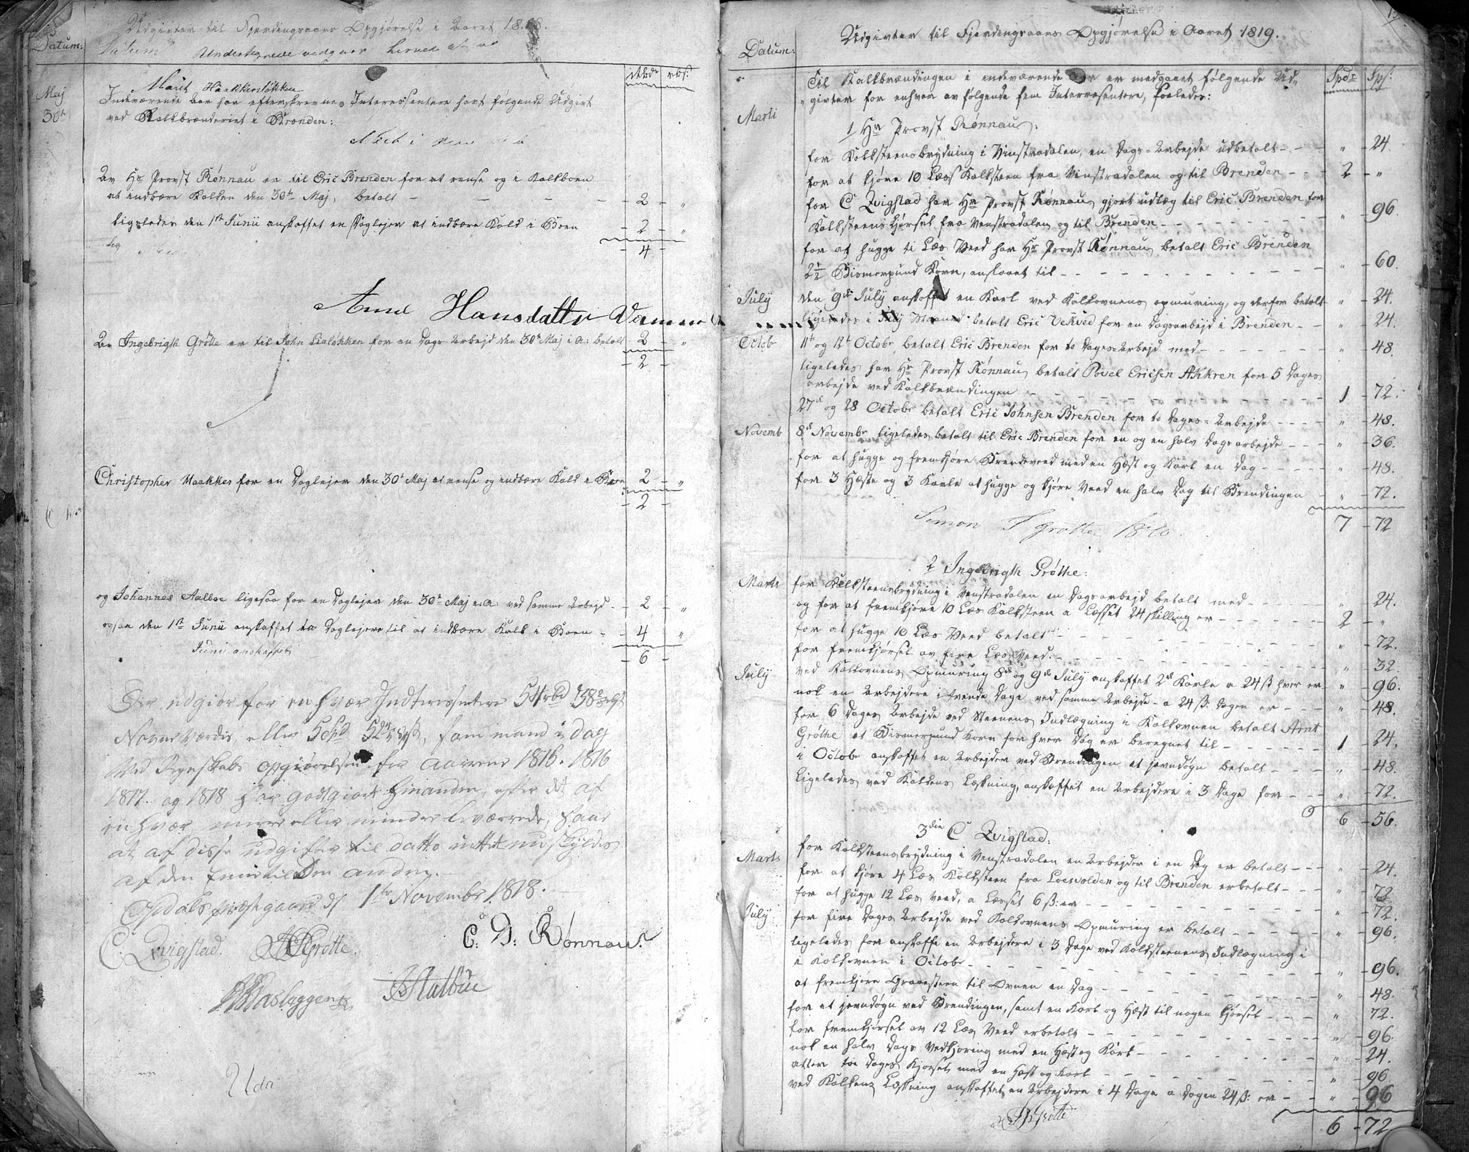 Udgivter til Fjendingraars Opgjørelse i Aaret 18
Datum:
Maj
30te
Marit Haakkensløkken
Indeværende Aar har efterskrevne Interessentere havt følgende Udgivt
ved Kalkbrænderiet i Brænden:
Af Hr Provst Rønnau er til Eric Brenden for at rense og i Kalkboen
at indbære Kalken den 30te Maj, betalt - 2 - "
ligeledes den 1ste Junii anskaffet en Daglejer at indbære Kalk i Boen - 2 - "
- 4 -
Ane Hansdatter
Af Ingebrigh Grøtte er til John Lialøkken for en Dags Arbejd den 30te Maj i a. betalt - 2 - "
- 2 -
Christopher Maakker for en Daglejer den 30te Maj at rense og indbære Kalk i Boen 2 - "
- 2 -
og Johannes Aalbue ligesaa for en Daglejer den 30te Maj a.c. ved samme Arbejd - 2 - "
ogsaa den 1ste Junii anskaffet to Daglejere til at indbære Kalk i Boen - 4 "
Junii anskaffet
- 6 -
Der udgiør for en hver Indteressentere 54 rbd 38
Navne Værdie, eller 5 Spd , som mand i dag
Ved Regnskabs opgiørelsen for Aarene 1815. 1816
1817. og 1818 har godgiort hinanden, efter det af
en hver mere eller mindre er værede, saa
at af disse udgifter til datto intet nu skyldes
af den Ene til den anden.
Opdals præstgaard d 1ste November 1818.
C. Qvigstad. Grøtte. C: D: Rønnau.
Haslæggen JAalbue
Udgivter til Fjendingraars Opgjørelse i Aaret 1819.
Datum:
Til Kalkbrændingen i indeværende Aar er medgaaet følgende Ud-
givter for enhver af følgende fem Interressentere, saaledes:
Spd Sk:
Marti
1 Hr Provst Rønnau:
for Kalksteensbrydning i Vinstradalen, en Dags-Arbejde udbetalt - - " - 24.
for at kjøre 10 Læs Kalksteen fra Venstradalen og til Brenden - 2 - "
for C Qvigstad har Hr Provst Rønnau gjort udlæg til Eric Brenden for
Kalksteens Kjørsel fra Venstradalen og til Brenden - " - 96
for at hugge ti Læs Veed har Hr Provst Rønnau betalt Eric Brenden
2½ Bismerpund Korn, anslaaet til - - - " - 60.
July
den 9de July anskaffet en Karl ved Kalkovnens opmuring, og derfor betalt " - 24.
ligeledes i July Maaned betalt Eric Vekved for en Dagsarbejd i Brenden - " - 24.
Octobr
11te og 12te Octobr, betalt Eric Brenden for to Dages-Arbejd med - - " - 48.
ligeledes har Hr Provst Rønnau betalt Povel Ericsen Akkren for 5 Dages
arbejde ved Kalkbrændingen - - 1 - 72.
27de og 28 Octobr betalt Eric Johnsen Brenden for to Dages-Arbejde - - " - 48.
Novemb
8de Novembr ligeledes betalt til Eric Brenden for en og en halv Dagsarbejde - - " - 36.
for at hugge og fremkjøre Brændeveed med en Hæst og Karl en Dag - - " - 48.
for 3 Hæste og 3 Karle at hugge og kjøre Veed en halv Dag til Brendingen - " - 72.
7 - 72
Simon
2 Ingebrigh Grøthe:
Marti
for Kalksteensbrydning i Venstradalen en Dagsarbejd betalt med - - - " - 24.
og for at fremkjøre 10 Læs Kalksteen a Læsset 24 skilling er - - 2 - "
for at hugge 10 Læs Veed betalt - - - " - 72.
for fremkjørsel af fire Læs Veed - - - " - 32
July
ved Kalkovnens Opmuring 8de og 9de July anskaffet 2de Karle a 24 ß hver er " - 96.
nok en Arbejdere i tvende Dage ved samme Arbejde a 24 ß Dagen er - - " - 48.
for 6 Dages Arbejde ved Steenens Indlægning i Kalkovnen betalt Arnt
Grøthe et Bismerpund Korn for hver Dag er beregnet til - - 1 - 24.
i Octobr anskaffet en Arbejdere ved Brendingen et jevndøgn betalt - - " - 48.
ligeledes ved Kalkens Leskning, anskaffet en Arbejdere i 3 Dage for - - " - 72.
6 - 56.
3die C Qvigstad:
Marts
for Kalksteensbrydning i Venstradalen en Arbejder i en Dag er betalt - - " - 24.
for at kjøre 4 Læs Kalksteen fra Loevolden og til Brenden erbetalt - - " 72
for at hugge 12 Læs veed, a Læsset 6 ß: er - - " - 72.
July
for fire Dages Arbejde ved Kalkovnens Opmuring er betalt - - " - 96.
ligeledes for anskaffe en Arbejdere i 3 Dage ved Kalksteenens Indlægning i
i Kalkovnen i Octobr - - " - 96.
at fremkjøre Graaesteen til Ovnen en Dag - - " - 48
for et jevndøgn ved Brendingen, samt en Karl og Hæst til nogen Kjørsel - - " - 72.
for fremkjørsel av 12 Læs Veed erbetalt - - " - 96
nok en halv Dags Vedkjøring med en Hæst og Karl - - " - 24.
atter to Dages Kjørsel med en Hæst og Karl - - " - 96
ved Kalkens Leskning anskaffet en Arbejdere i 4 Dage a Dagen 24 ß: er - - " - 96
6 - 72
Grøtte